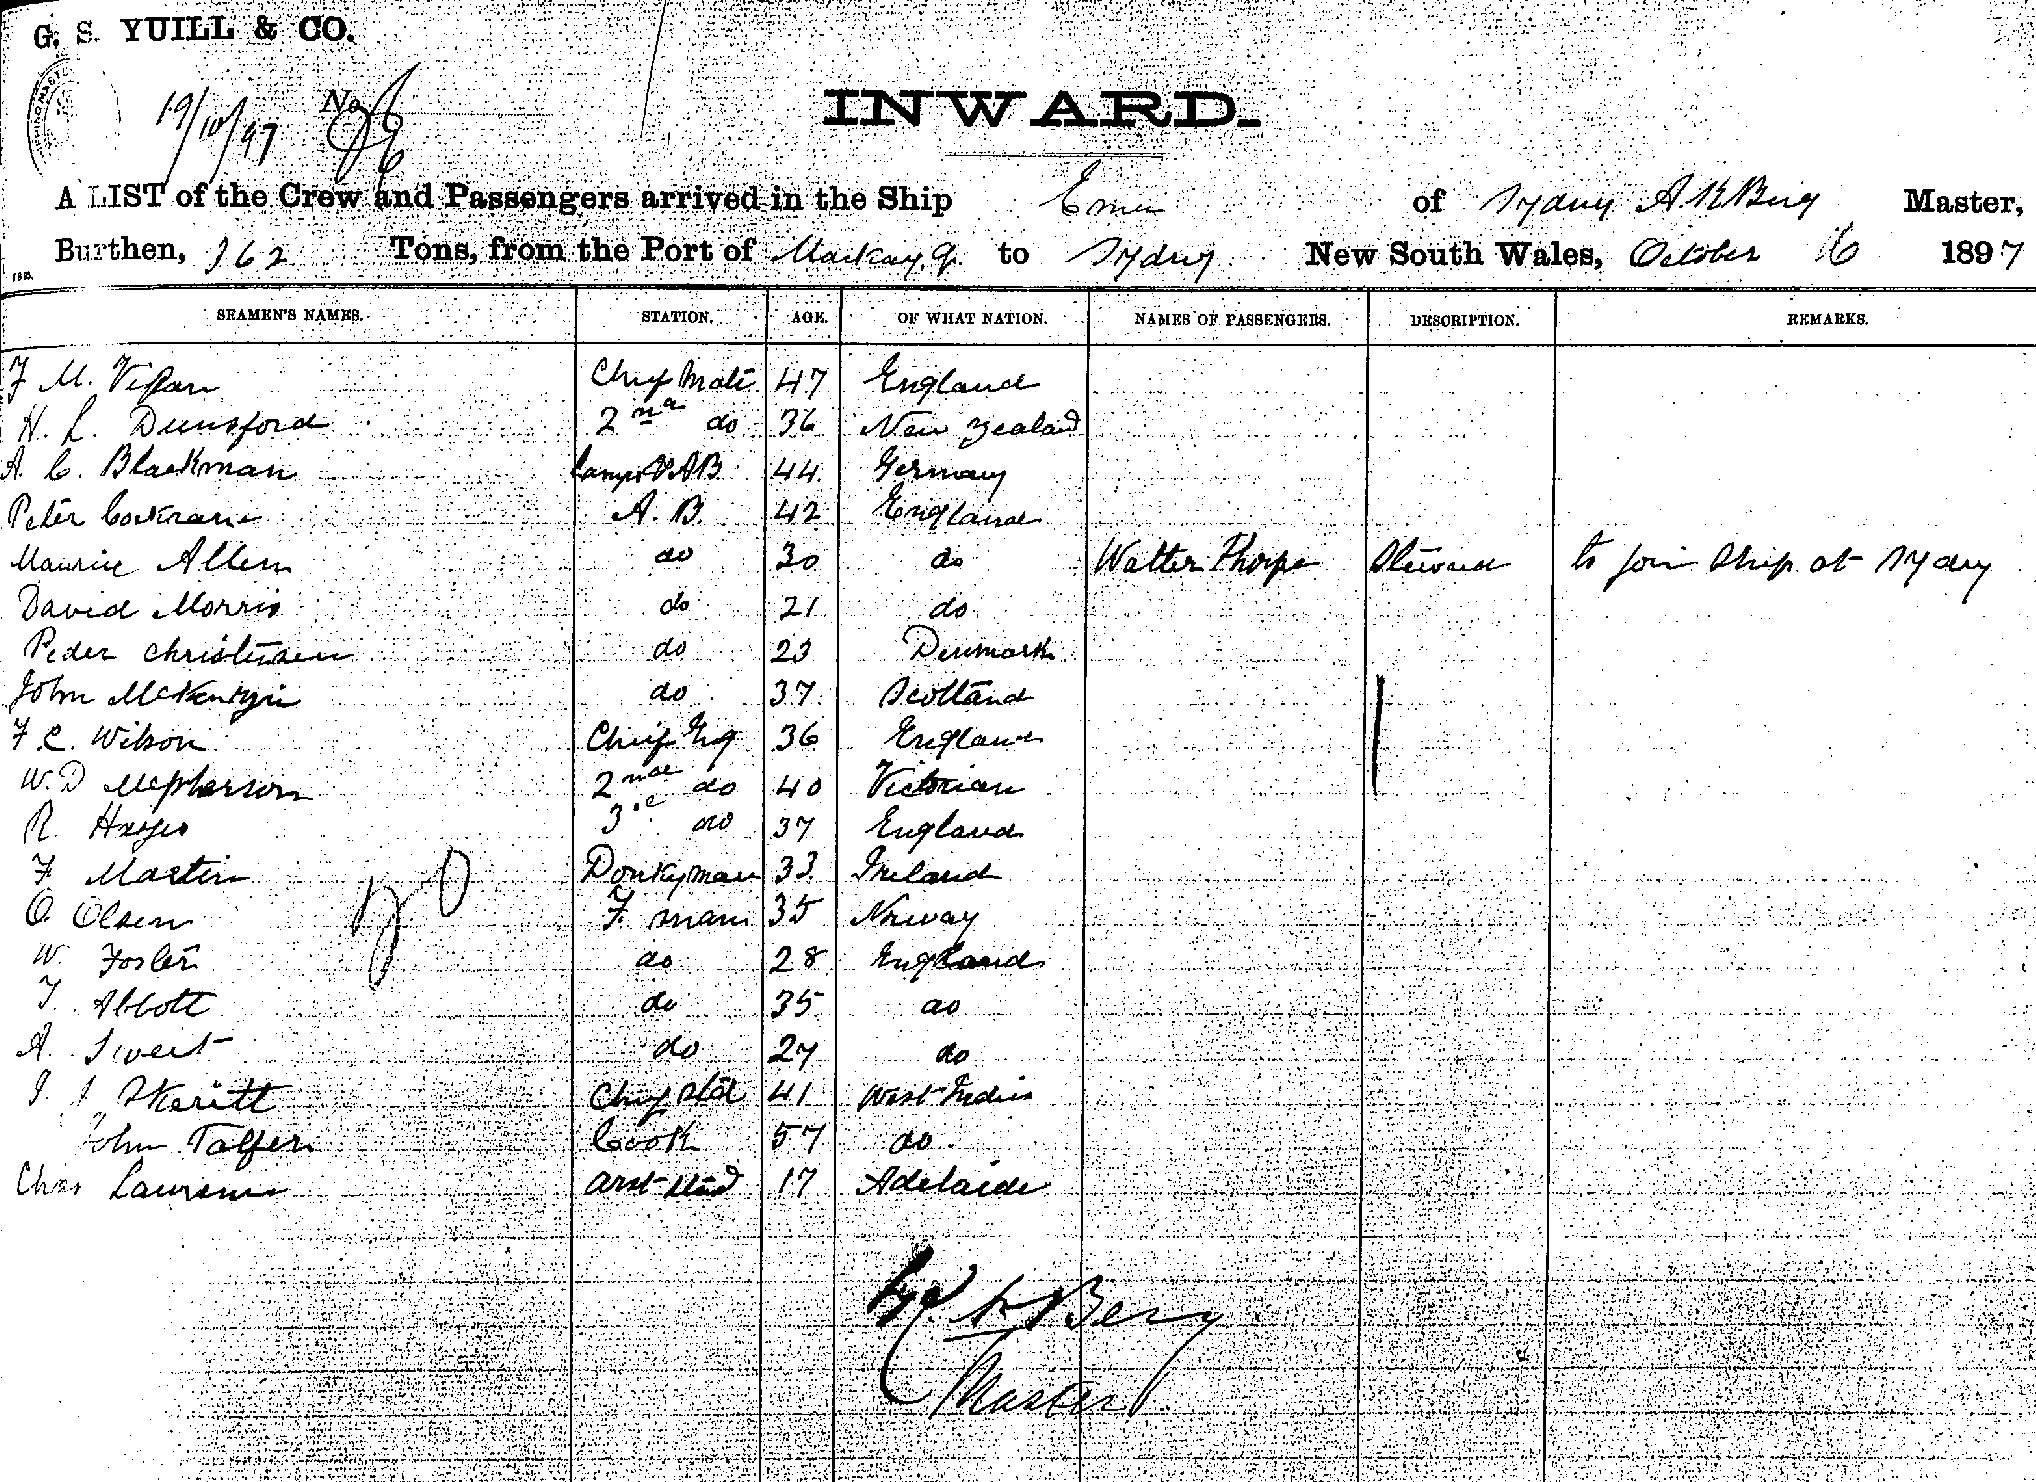 G. S. YUILL & CO.
19/10/97 No
INWARD.
A LIST of the Crew and Passengers arrived in the Ship of Sydney Berg Master,
Burthen, 362 Tons, from the Port of Mackay, Q. to Sydney New South Wales, October 16 1897
SEAMEN'S NAMES. STATION. AGE. OF WHAT NATION. NAMES OF PASSENGERS. DESCRIPTION. REMARKS.
F M. Chief Mate 47 England
H. L. Dunsford 2nd do 36 New Zealand
A C. Blackman Lamps & AB 44 Germany
Peter Cockrane A. B. 42 England
Maurice Allen do 30 do Walter Thorpe Steward to join Ship at Sydney
David Morris do 21 do
Peder Christensen do 23 Denmark
John McKenzie do 37 Scotland
F. C. Wilson Chief Eng 36 England
W. D McPherson 2nd do 40 Victorian
R. Hayes 3rd do 37 England
F Martin Donkyman 33 Ireland
O. Olsen F. man 35 Norway
W. Foster do 28 England
T. Abbott do 35 do
A. Sweet do 27 do
Skeritt Chief Std 41 West Indies
John Talfer Cook 57 do
Chas Lawrence asst Std 17 Adelaide
Berg
Master